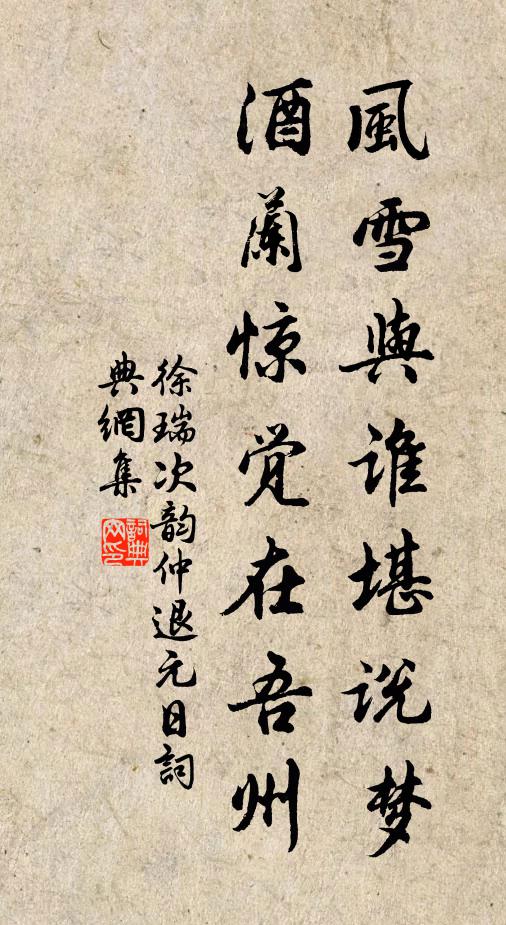 風雪與誰堪说梦
酒蘭惊觉在吾州
徐瑞次韵仲退元日詞
典網集
詞典
网印